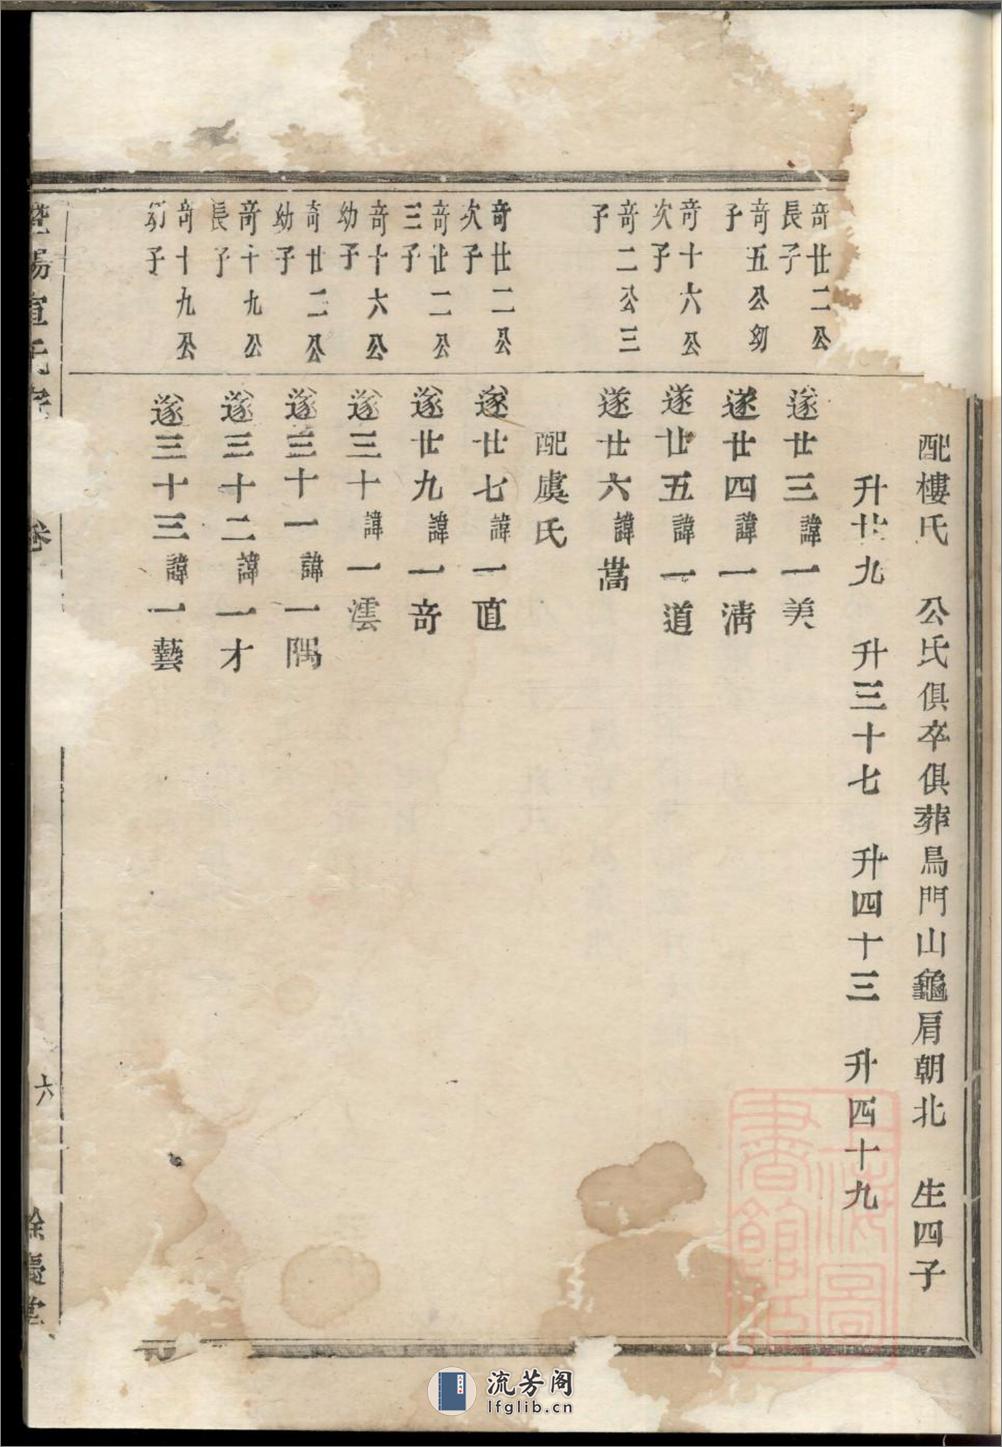 配樓氏 公氏俱卒俱葬鳥門山龜肩朝北 生四子
升廿九 升三十七 升四十三 升四十九
奇廿二公
長子
遂廿三諱一美
奇五公幼
子
遂廿四諱一淸
奇十六公
次子
遂廿五諱一道
奇二公三
子
遂廿六諱一嵩
配虞氏
奇廿二公
次子
遂廿七諱一直
奇廿二公
三子
遂廿九諱一奇
奇十六公
幼子
遂三十諱一澐
奇廿二公
幼子
遂三十一諱一隅
奇十九公
長子
遂三十二諱一才
奇十九公
幼子
遂三十三諱一藝
暨陽宣氏宗
卷
六
餘慶堂
上海圖書館藏
流芳阁
lfglib.cn